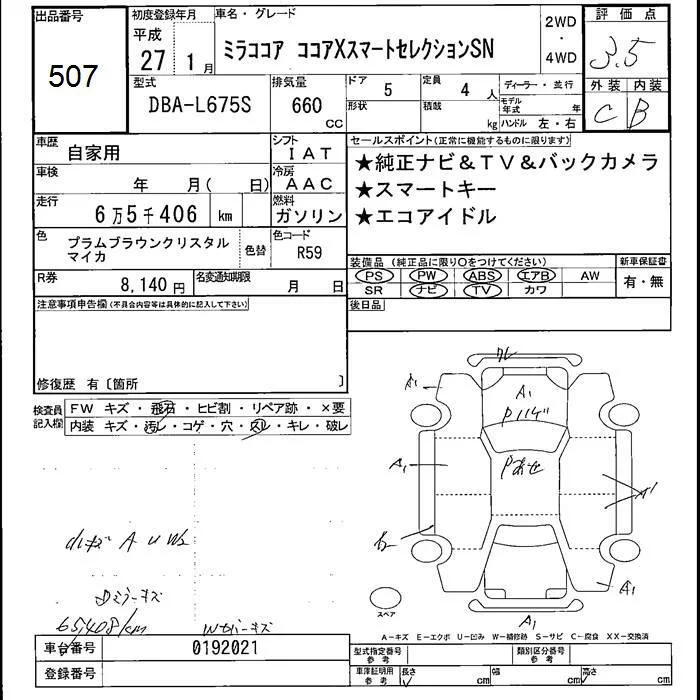 出品番号
507
初度登録年月
平成
27年 1月
車名・グレード
ミラココア ココアXスマートセレクションSN
2WD
・
4WD
評価点
3.5
外装 内装
C B
型式
DBA-L675S
排気量
660
CC
ドア
5
形状
定員
4 人
積載
kg
ディーラー・並行
モデル年式 年
ハンドル 左・右
車歴
自家用
シフト
IAT
車検
年 月( 日)
冷房
AAC
走行
6万5千406 km
燃料
ガソリン
色
プラムブラウンクリスタル
マイカ
色替
色コード
R59
R券
8,140 円
名変通知期限
月 日
セールスポイント(正常に機能するものに限ります)
★純正ナビ&TV&バックカメラ
★スマートキー
★エコアイドル
装備品 (純正品に限り○をつけてください)
新車保証書
PS PW ABS エアB AW
有・無
SR ナビ TV カワ
後日品
注意事項申告欄(不具合内容等は具体的に記入して下さい)
修復歴 有〔箇所 〕
検査員
記入欄
FW キズ・飛石・ヒビ割・リペア跡・×要
内装 キズ・汚レ・コゲ・穴・スレ・キレ・破レ
A1
A1
A1
A1
A1
A U W2
65,408/km
スペア
A-キズ E-エクボ U-凹み W-補修跡 S-サビ C-腐食 XX-交換済
車台番号
0192021
登録番号
型式指定番号
参考
類別区分番号
参考
車庫証明用
参考
長さ cm
幅 cm
高さ cm